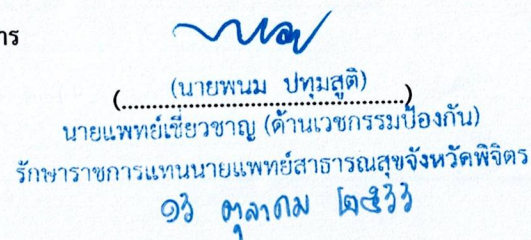 าร
(นายพนม ปทุมสูติ)
นายแพทย์เชี่ยวชาญ (ด้านเวชกรรมป้องกัน)
รักษาราชการแทนนายแพทย์สาธารณสุขจังหวัดพิจิตร
๑๓ ตุลาคม